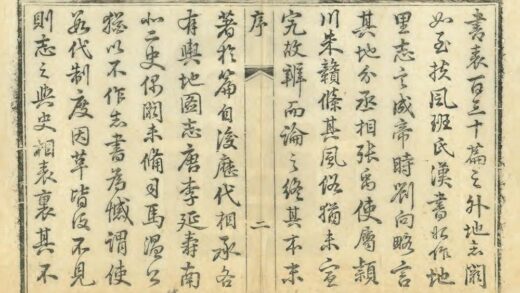 書表百三十篇之外地志闕
如至扶風班氏漢書始作地
里志言成帝時劉向略言
其地分丞相張禹使屬潁
川朱贛條其風俗猶未宣
究故輯而論之終其本末
序 二
著於篇自後歷代相承各
有輿地圖志唐李延壽南
北二史俱闕未備司馬溫公
猶以不作志書為憾謂使
數代制度因革皆沒不見
則志之與史相表裏其不